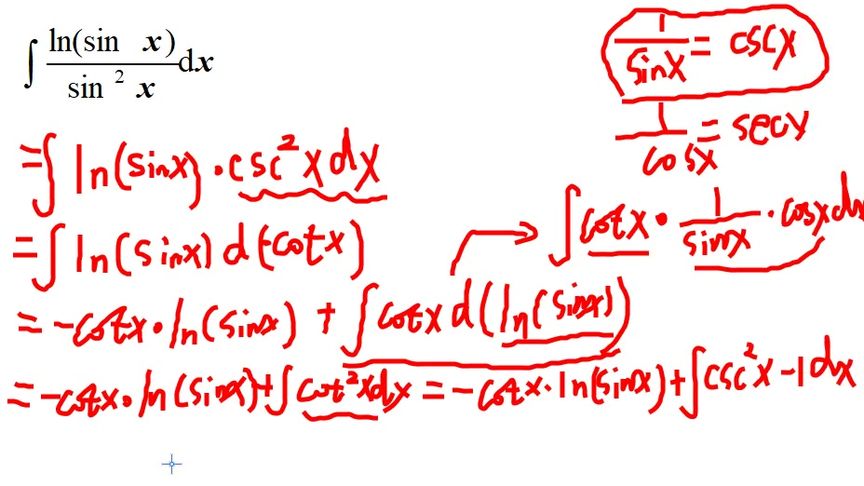 ∫ ln(sin x) / sin² x dx
1/sinx = cscx
1/cosx = secx
= ∫ ln(sinx) · csc²x dx
= ∫ ln(sinx) d(-cotx)
∫ cotx · 1/sinx · cosx dx
= -cotx · ln(sinx) + ∫ cotx d(ln(sinx))
= -cotx · ln(sinx) + ∫ cot²x dx = -cotx · ln(sinx) + ∫ csc²x - 1 dx